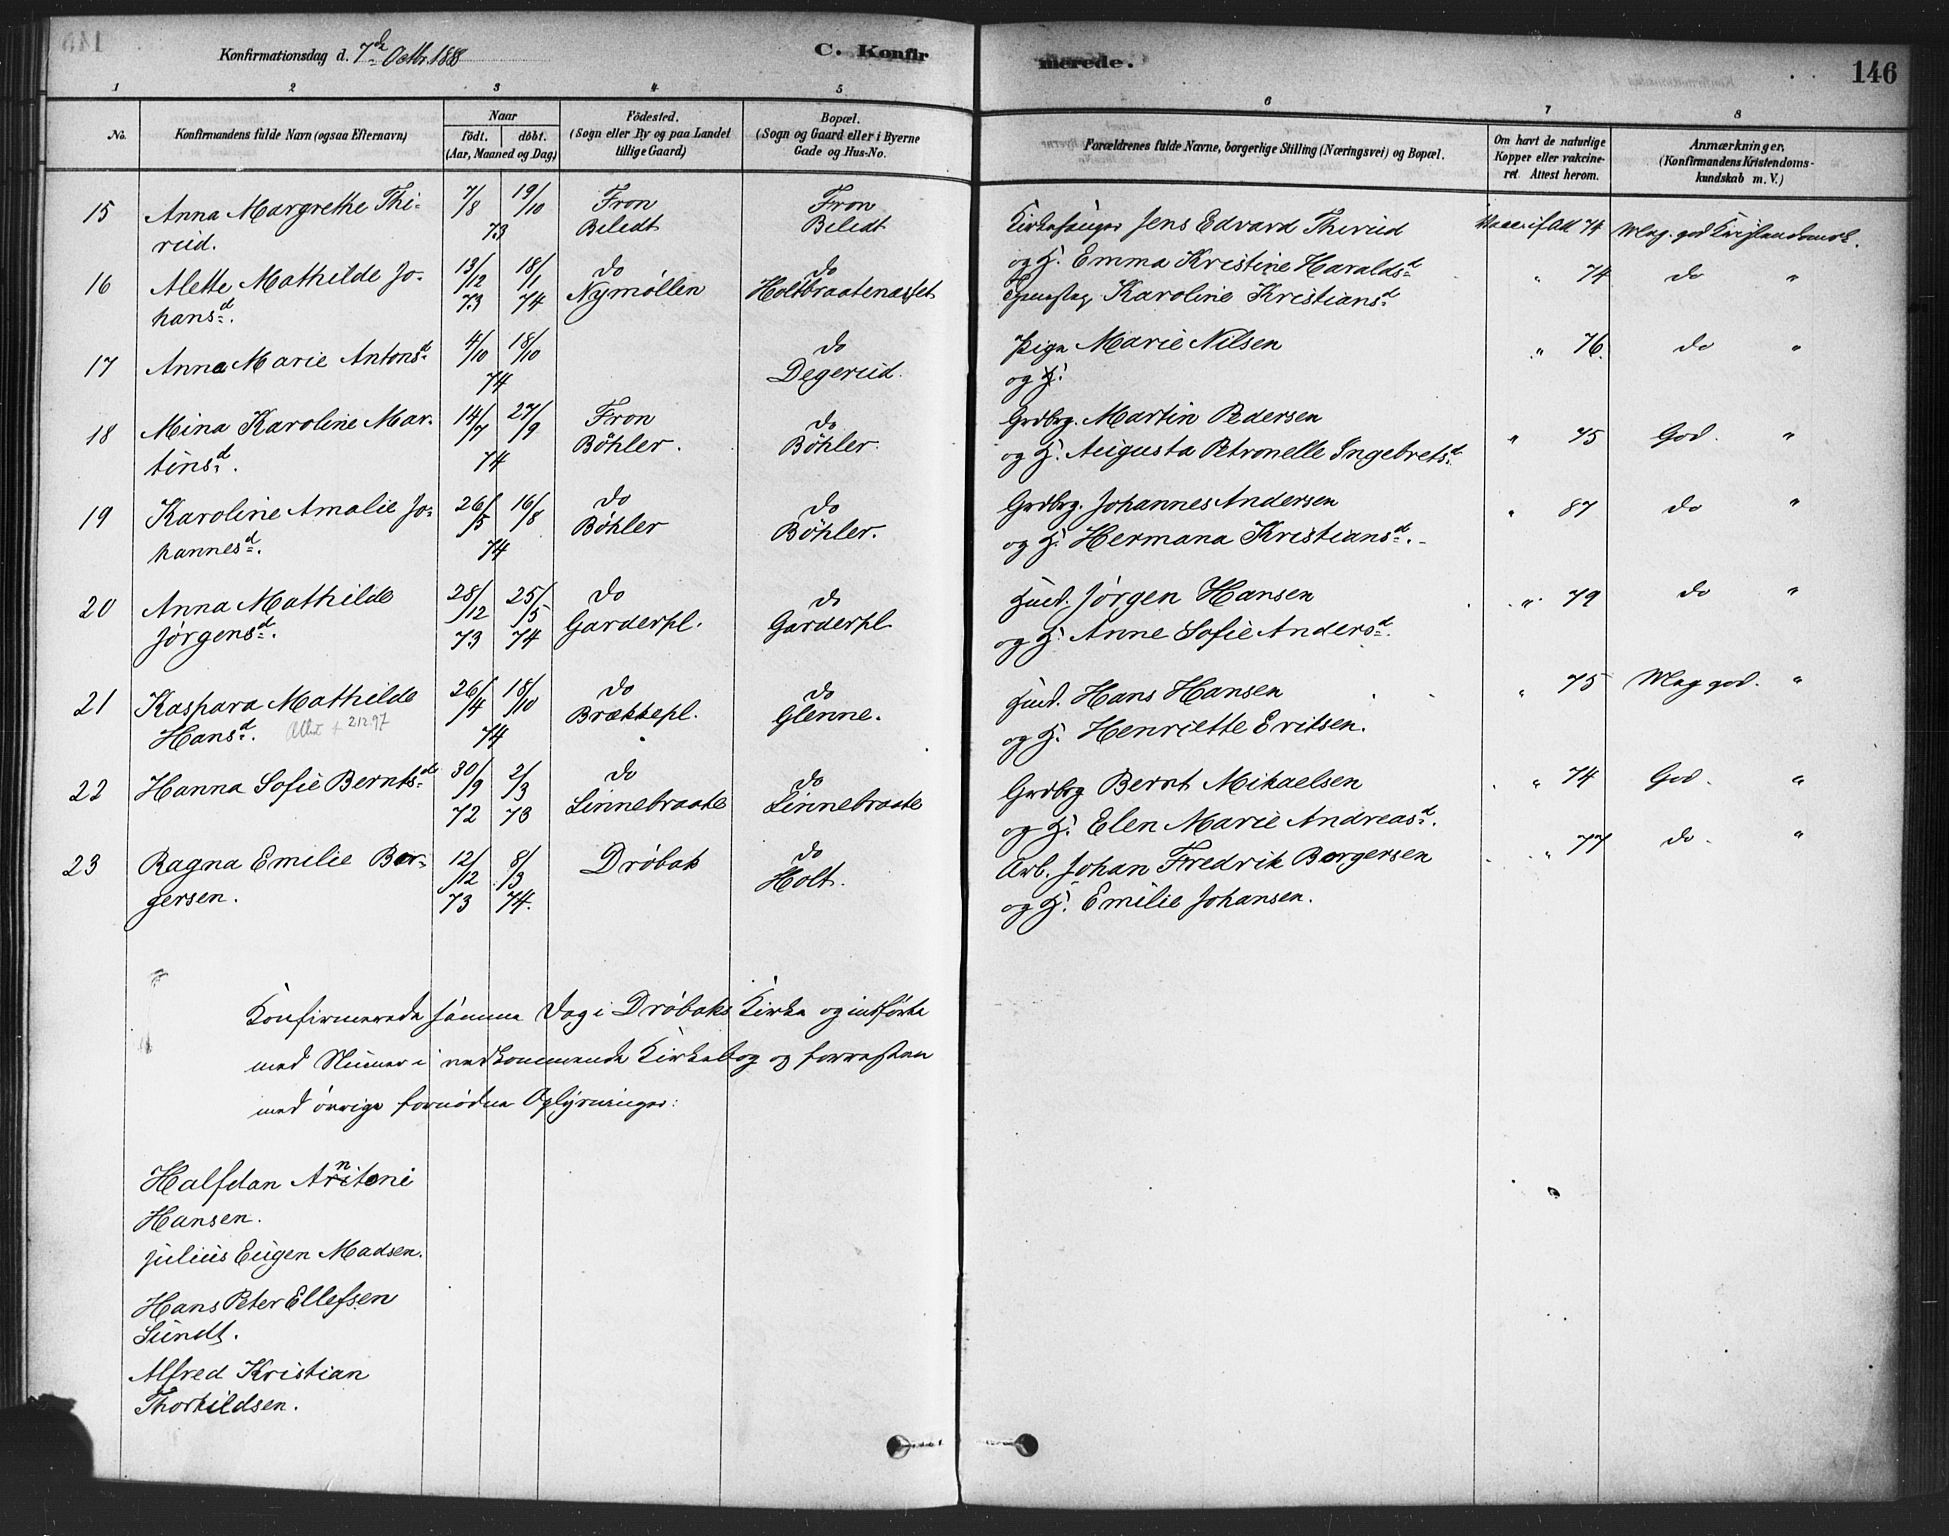 Konfirmationsdag d. 7de Octbr. 1888
C. Konfirmerede.
146
1 2 3 4 5 6 7 8
No.
Konfirmandens fulde Navn (ogsaa Efternavn)
Naar
födt. döbt.
(Aar, Maaned og Dag)
Födested.
(Sogn eller By og paa Landet
tillige Gaard)
Bopæl.
(Sogn og Gaard eller i Byerne
Gade og Hus-No.
Forældrenes fulde Navne, borgerlige Stilling (Næringsvei) og Bopæl.
Om havt de naturlige
Kopper eller vakcine-
ret. Attest herom.
Anmærkninger.
(Konfirmandens Kristendoms-
kundskab m. V.)
15 Anna Margrethe Thi- 7/8 19/10 Fron Fron Kirkesanger Jens Edvard Thirud 74 Meg. god Kristendomsk.
rud. 73 Biledt Biledt og H. Emma Kristine Haraldsd.
16 Alette Mathilde Jo- 13/12 18/1 do do
hansd. 73 74 Nymøllen Holtbraatenæsset Karoline Kristiansd. " 74 do "
17 Anna Marie Antonsd. 4/10 18/10 do Pige Marie Nilsen " 76. do "
74 Degerud. og H.
18 Mina Karoline Mar- 14/7 27/9 Fron do Grdbrg. Martin Pedersen
tinsd. 74 Bøhler. Bøhler. og H. Augusta Petronelle Ingebretsd. " 75 God. "
19 Karoline Amalie Jo- 26/5 16/8 do do Grdbrg. Johannes Andersen " 87 do "
hannesd. 74 Bøhler Bøhler. og H. Hermana Kristiansd.
20 Anna Mathilde 28/12 25/5 do do Husd. Jørgen Hansen " 79 do "
Jørgensd. 73 74 Garderpl. Garderpl. og H. Anne Sofie Andersd.
21 Kaspara Mathilde 26/4 18/10 do do Husd. Hans Hansen " 75 Meg god. "
Hansd. 74 Brækkepl. Glenne. og H. Henriette Eriksen.
22 Hanna Sofie Berntsd. 30/9 2/3 do do Grdbrg Bernt Mikaelsen " 74 God. "
72 73 Linnebraate Linnebraate og H. Elen Marie Andreasd.
23 Ragna Emilie Bor- 12/12 8/3 Drøbak do Arb. Johan Fredrik Borgersen " 77 do. "
gersen. 73 74. Holt. og H. Emilie Johansen.
Konfirmerede samme Dag i Drøbaks Kirke og indførte
med Numer i vedkommende Kirkebog og forresten
med øvrige fornødne Oplysninger:
Halfdan Antoni
Hansen.
Julius Eugen Madsen.
Hans Peter Ellefsen
Sundt.
Alfred Kristian
Thorkildsen.